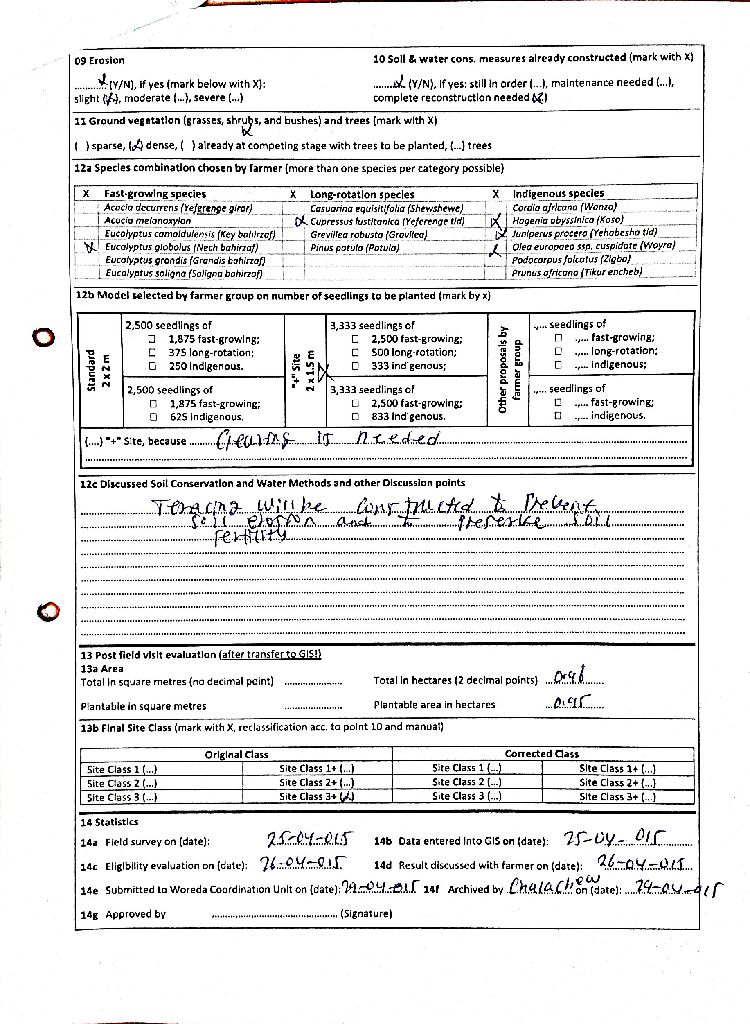 09 Erosion
10 Soil & water cons. measures already constructed (mark with X)
.........(Y/N), if yes (mark below with X):
.........(Y/N), if yes: still in order (...), maintenance needed (...),
slight (X), moderate (...), severe (...)
complete reconstruction needed (X)
11 Ground vegetation (grasses, shrubs, and bushes) and trees (mark with X)
( ) sparse, (X) dense, ( ) already at competing stage with trees to be planted, (...) trees
12a Species combination chosen by farmer (more than one species per category possible)
X Fast-growing species X Long-rotation species X Indigenous species
Acacia decurrens (Yefgrenge girar) Casuarina equisitifolia (Shewshewe) Cordia africana (Wanza)
Acacia melanoxylon X Cupressus lustitanica (Yeferenge tid) X Hagenia abyssinica (Koso)
Eucalyptus camaldulensis (Key bahirzaf) Grevillea robusta (Gravilea) X Juniperus procera (Yehabesha tid)
X Eucalyptus globolus (Nech bahirzaf) Pinus patula (Patula) X Olea europaea ssp. cuspidate (Woyra)
Eucalyptus grandis (Grandis bahirzaf) Podocarpus falcatus (Zigba)
Eucalyptus saligna (Saligna bahirzaf) Prunus africana (Tikur encheb)
12b Model selected by farmer group on number of seedlings to be planted (mark by x)
Standard
2 x 2 m
2,500 seedlings of
☐ 1,875 fast-growing;
☐ 375 long-rotation;
☐ 250 indigenous.
2,500 seedlings of
☐ 1,875 fast-growing;
☐ 625 indigenous.
"+" Site
2 x 1.5 m
X
3,333 seedlings of
☐ 2,500 fast-growing;
☐ 500 long-rotation;
☐ 333 indigenous;
3,333 seedlings of
☐ 2,500 fast-growing;
☐ 833 indigenous.
Other proposals by
farmer group
.,... seedlings of
☐ .,... fast-growing;
☐ .,... long-rotation;
☐ .,... indigenous;
.,... seedlings of
☐ .,... fast-growing;
☐ .,... indigenous.
(....) "+" Site, because ......... Clearing is needed
12c Discussed Soil Conservation and Water Methods and other Discussion points
Teracing will be constructed to prevent
soil erosion and to preserve soil
fertility
13 Post field visit evaluation (after transfer to GIS!)
13a Area
Total in square metres (no decimal point) ...................... Total in hectares (2 decimal points)
Plantable in square metres ...................... Plantable area in hectares ...0.95......
13b Final Site Class (mark with X, reclassification acc. to point 10 and manual)
Original Class Corrected Class
Site Class 1 (...) Site Class 1+ (...) Site Class 1 (...) Site Class 1+ (...)
Site Class 2 (...) Site Class 2+ (...) Site Class 2 (...) Site Class 2+ (...)
Site Class 3 (...) Site Class 3+ (X) Site Class 3 (...) Site Class 3+ (...)
14 Statistics
14a Field survey on (date): 25-04-015 14b Data entered into GIS on (date): 25-04-015
14c Eligibility evaluation on (date): 26-04-015 14d Result discussed with farmer on (date): 26-04-015
14e Submitted to Woreda Coordination Unit on (date): 29-04-015 14f Archived by Chalachew on (date): 29-04-015
14g Approved by ........................................ (Signature)